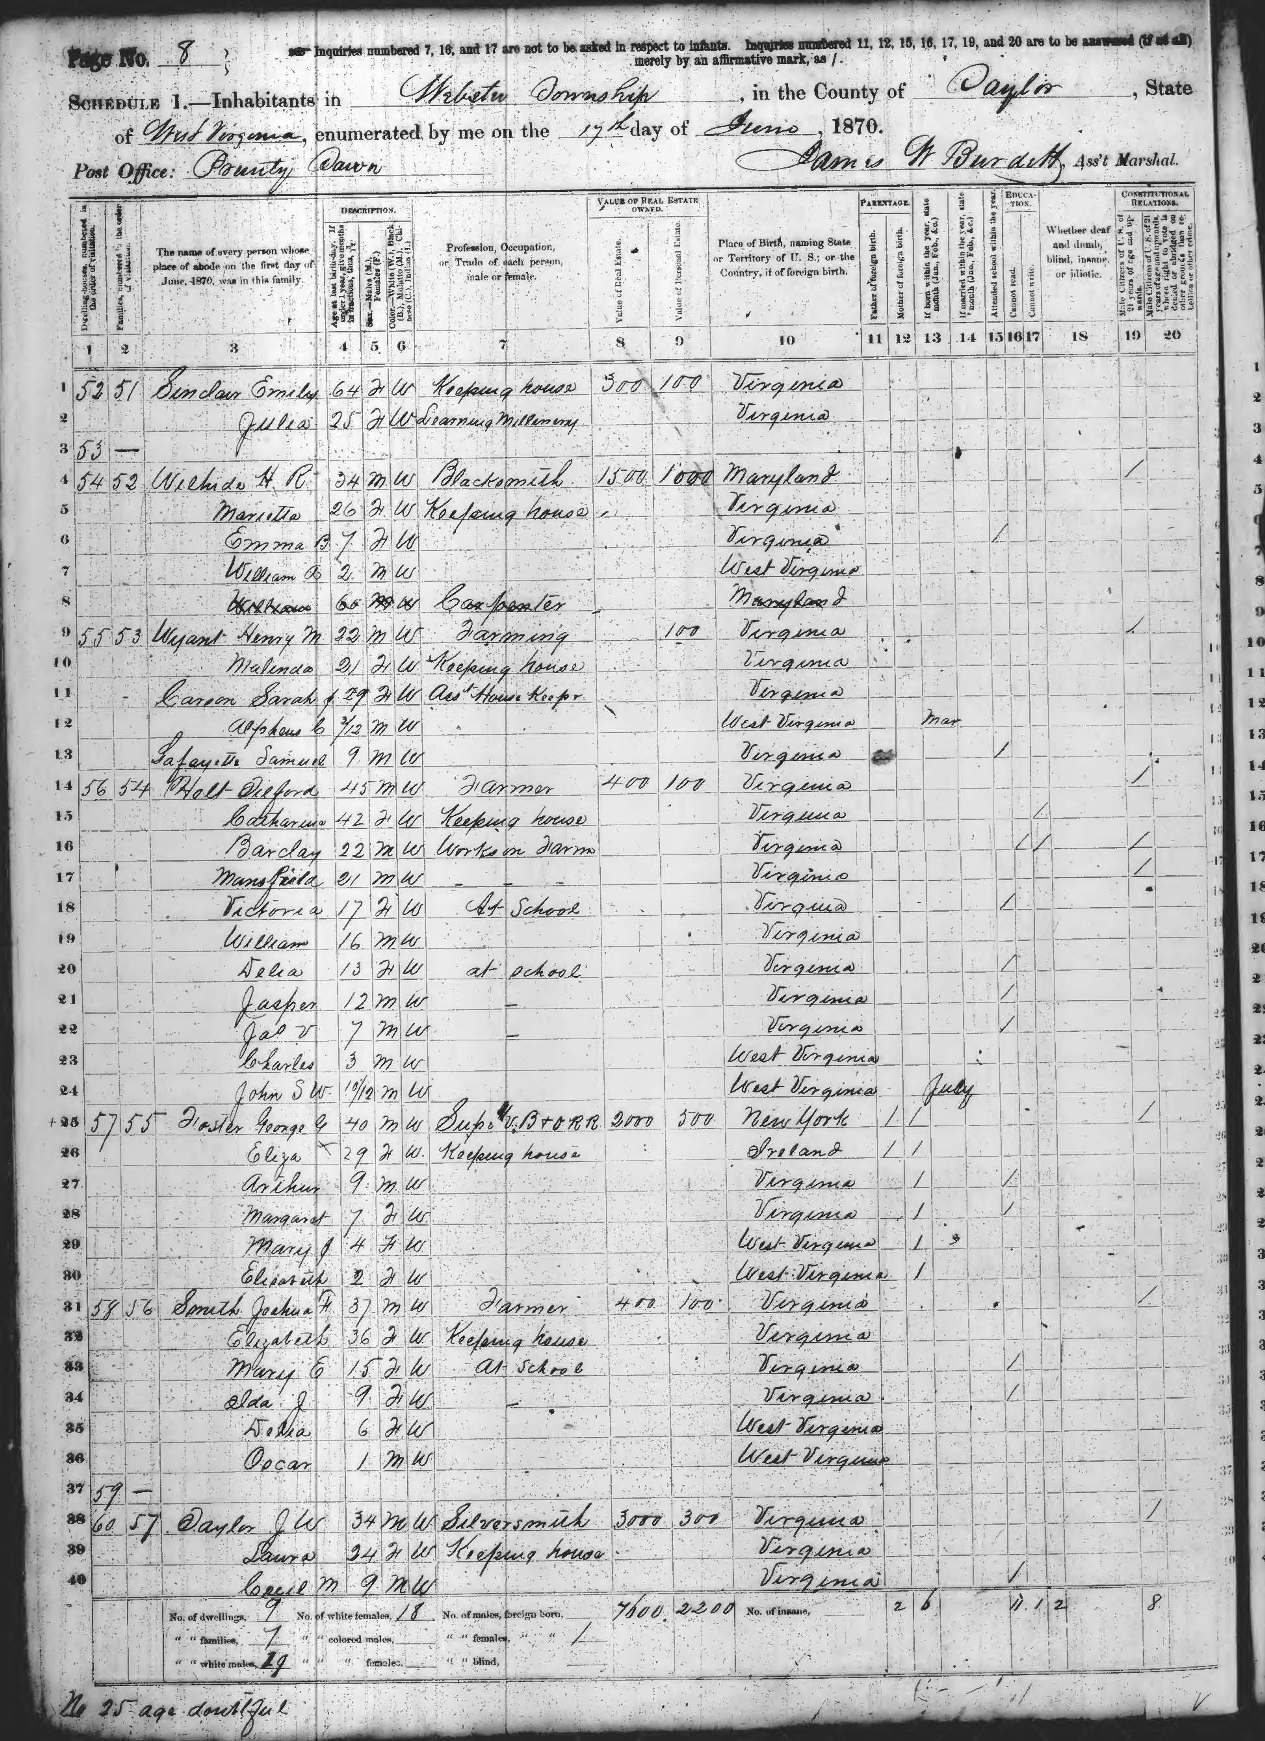 Page No. 8
Inquiries numbered 7, 16, and 17 are not to be asked in respect to infants. Inquiries numbered 11, 12, 15, 16, 17, 19, and 20 are to be answered (if at all)
merely by an affirmative mark, as /.
SCHEDULE 1.—Inhabitants in Webster Township, in the County of Taylor, State
of West Virginia, enumerated by me on the 17th day of June, 1870.
Post Office: Prunty Town James W Burdett, Ass't Marshal.
DESCRIPTION. VALUE OF REAL ESTATE OWNED. PARENTAGE. EDUCATION. CONSTITUTIONAL RELATIONS.
Dwelling-houses, numbered in the order of visitation.
Families, numbered in the order of visitation.
The name of every person whose place of abode on the first day of June, 1870, was in this family.
Age at last birth-day. If under 1 year, give months in fractions, thus, 3/12
Sex.—Males (M.), Females (F.)
Color.—White (W.), Black (B.), Mulatto (M.), Chinese (C.), Indian (I.)
Profession, Occupation, or Trade of each person, male or female.
Value of Real Estate.
Value of Personal Estate.
Place of Birth, naming State or Territory of U. S.; or the Country, if of foreign birth.
Father of foreign birth.
Mother of foreign birth.
If born within the year, state month (Jan., Feb., &c.)
If married within the year, state month (Jan., Feb., &c.)
Attended school within the year.
Cannot read.
Cannot write.
Whether deaf and dumb, blind, insane, or idiotic.
Male Citizens of U. S. of 21 years of age and upwards.
Male Citizens of U. S. of 21 years of age and upwards, whose right to vote is denied or abridged on other grounds than rebellion or other crime.
1 2 3 4 5 6 7 8 9 10 11 12 13 14 15 16 17 18 19 20
1 52 51 Sinclair Emily 64 F W Keeping house 300 100 Virginia
2 Julia 25 F W Learning Millinery Virginia
3 53 —
4 54 52 Wilhide H. R. 34 M W Blacksmith 1500 1000 Maryland /
5 Marietta 26 F W Keeping house Virginia
6 Emma B 7 F W Virginia /
7 William 2 M W West Virginia
8 William 60 M W Carpenter Maryland
9 55 53 Wyant Henry M 22 M W Farming 100 Virginia /
10 Malinda 21 F W Keeping house Virginia
11 Carson Sarah J 29 F W Asst House Keepr Virginia
12 Alpheus C 3/12 M W West Virginia Mar
13 Lafayette Samuel 9 M W Virginia /
14 56 54 Holt Tilford 45 M W Farmer 400 100 Virginia /
15 Catharine 42 F W Keeping house Virginia /
16 Barclay 22 M W Works on Farm Virginia / / /
17 Mansfield 21 M W – – – Virginia /
18 Victoria 17 F W At School Virginia /
19 William 16 M W Virginia
20 Delia 13 F W at school Virginia /
21 Jasper 12 M W – Virginia /
22 Jas V 7 M W – Virginia /
23 Charles 3 M W West Virginia
24 John S W 10/12 M W West Virginia July
25 57 55 Foster George G 40 M W Supt B+ORR 2000 500 New York / / /
26 Eliza 29 F W Keeping house Ireland / /
27 Arthur 9 M W Virginia / /
28 Margaret 7 F W Virginia / /
29 Mary J 4 F W West Virginia /
30 Elizabeth 2 F W West Virginia /
31 58 56 Smith Joshua F 37 M W Farmer 400 100 Virginia /
32 Elizabeth 36 F W Keeping house Virginia
33 Mary E 15 F W At School Virginia /
34 Ida J 9 F W – Virginia /
35 Delia 6 F W West Virginia
36 Oscar 1 M W West Virginia
37 59 —
38 60 57 Taylor J W 34 M W Silversmith 3000 300 Virginia /
39 Laura 24 F W Keeping house Virginia
40 Cecil M 9 M W Virginia /
No. of dwellings, 9 No. of white females, 18 No. of males, foreign born, 7600 2200 No. of insane, 2 6 11 1 2 8
" " families, 7 " " colored males, " " females, " " /
" " white males, 19 " " " females, " " blind,
No 25 age doubtful